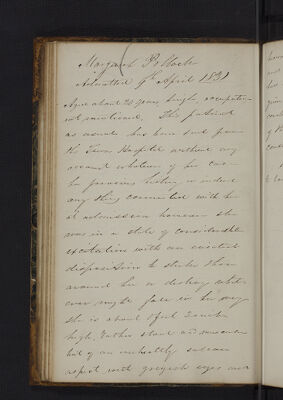 Margaret Pollock
Admitted 9th April 1831
Age about 20 years, single, occupation
not mentioned. This patient
as usual has been sent from
the Town Hospital without any
account whatever of her case
her previous history or indeed
any thing connected with her
at admission however she
was in a state of considerable
excitation with an
disposition to strike those
around her or destroy what-
ever might fall in her way
She is about 5 feet
high, rather stout and muscular
but of an unhealthy
aspect, with greyish eyes and